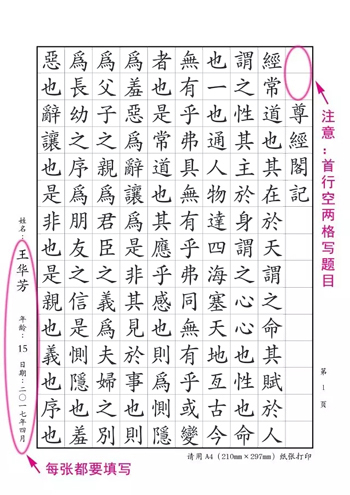 尊經閣記
經常道也其在於天謂之命其賦於人
謂之性其主於身謂之心心也性也命
也一也通人物達四海塞天地亙古今
無有乎弗具無有乎弗同無有乎或變
者也是常道也其應乎感也則爲惻隱
爲羞惡爲辭讓爲是非其見於事也則
爲父子之親爲君臣之義爲夫婦之別
爲長幼之序爲朋友之信是惻隱也羞
惡也辭讓也是非也是親也義也序也
姓名:王华芳 年龄:15 日期:二〇一七年四月
注意:首行空两格写题目
第1頁
请用A4(210mm×297mm)纸张打印
每张都要填写